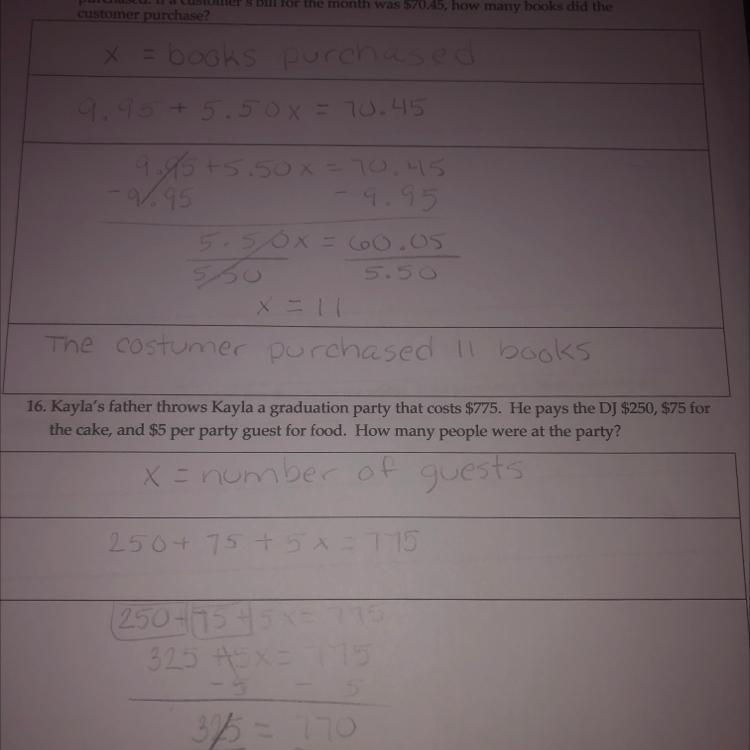 purchased. If a customer's bill for the month was $70.45, how many books did the
customer purchase?
x = books purchased
9.95 + 5.50x = 70.45
9.95 + 5.50x = 70.45
-9.95 - 9.95
5.50x = 60.05
5.50 5.50
x = 11
The costumer purchased 11 books
16. Kayla's father throws Kayla a graduation party that costs $775. He pays the DJ $250, $75 for
the cake, and $5 per party guest for food. How many people were at the party?
x = number of guests
250 + 75 + 5x = 775
250 + 75 + 5x = 775
325 + 5x = 775
- 5 - 5
325 = 770